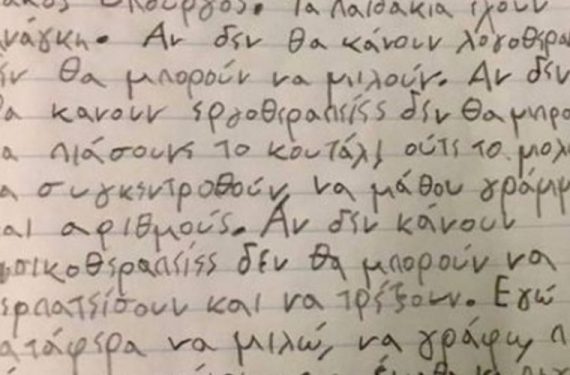 Υπουργός. Τα παιδάκια έχουν
νάγκη. Αν δεν θα κάνουν λογοθερα
εν θα μπορούν να μιλούν. Αν δεν
α κανουν εργοθεραπείες δεν θα μπρο
α πιάσουνε το κουτάλι ούτε το μολ
α συγκεντροθούν, να μάθου γράμμ
αι αριθμούς. Αν δεν κάνουν
σικοθεραπείες δεν θα μπορούν να
ερπατείσουν και να τρέξουν. Εγώ
ατάφερα να μιλώ, να γράφω, π